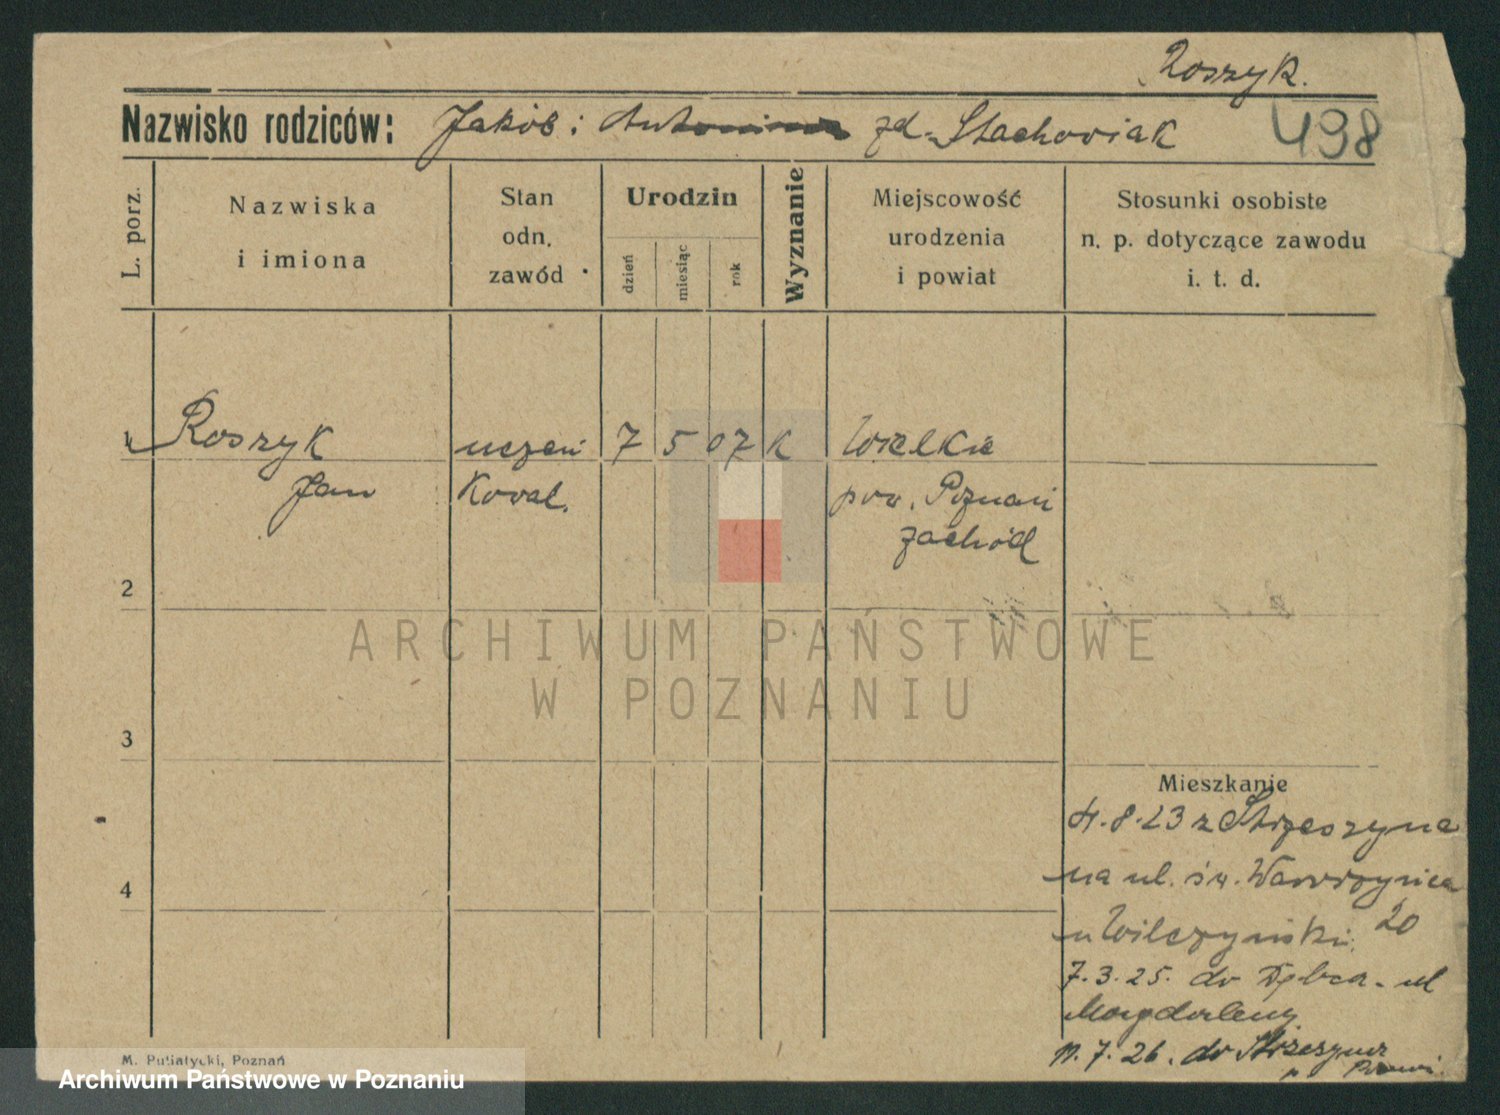 Roszyk.
Nazwisko rodziców: Jakób i Antonina zd. Stachoviak
498
L. porz.
Nazwiska
i imiona
Stan
odn.
zawód
Urodzin
dzień
miesiąc
rok
Wyznanie
Miejscowość
urodzenia
i powiat
Stosunki osobiste
n. p. dotyczące zawodu
i. t. d.
1 Roszyk uczeń 7 5 07 K Wielkie
Jan Koval. pow. Poznań
zachód
2
3
4
Mieszkanie
4.8.23 z Strzeszyna
na ul. św. Wawrzyńca
u Wilczyński 20
7.3.25. do Dębca - ul
Magdaleny
11.7.26. do Strzeszyna
M. Putiatycki, Poznań
ARCHIWUM PAŃSTWOWE
W POZNANIU
Archiwum Państwowe w Poznaniu